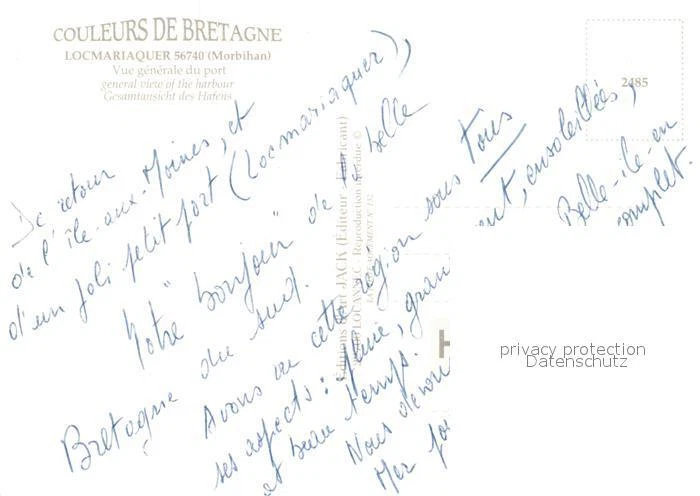 COULEURS DE BRETAGNE
LOCMARIAQUER 56740 (Morbihan)
Vue générale du port
general view of the harbour
Gesamtansicht des Hafens
2485
De retour
de l'île-aux-Moines, et
d'un joli petit port (Locmariaquer),
Notre "bonjour" de la belle
Bretagne du sud.
Avons vu cette région sous tous
ses aspects : pluie, ensoleillées,
et beau temps.
Nous
Belle-ile-en
Mer complet.
Editions d'art JACK (Editeur fabricant)
LOUANNEC Reproduction interdite ©
privacy protection
Datenschutz